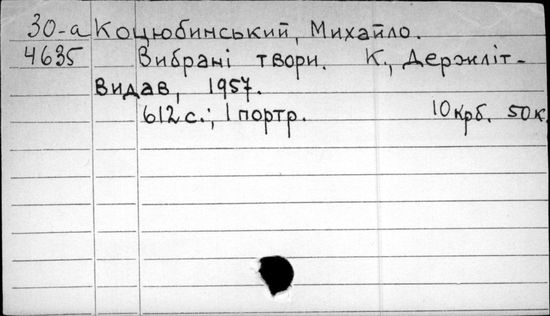 30-а Коцюбинський, Михайло.
4635 Вибрані твори. К., Держліт-
видав, 1957.
612 с.; 1 портр. 10 крб. 50 к.